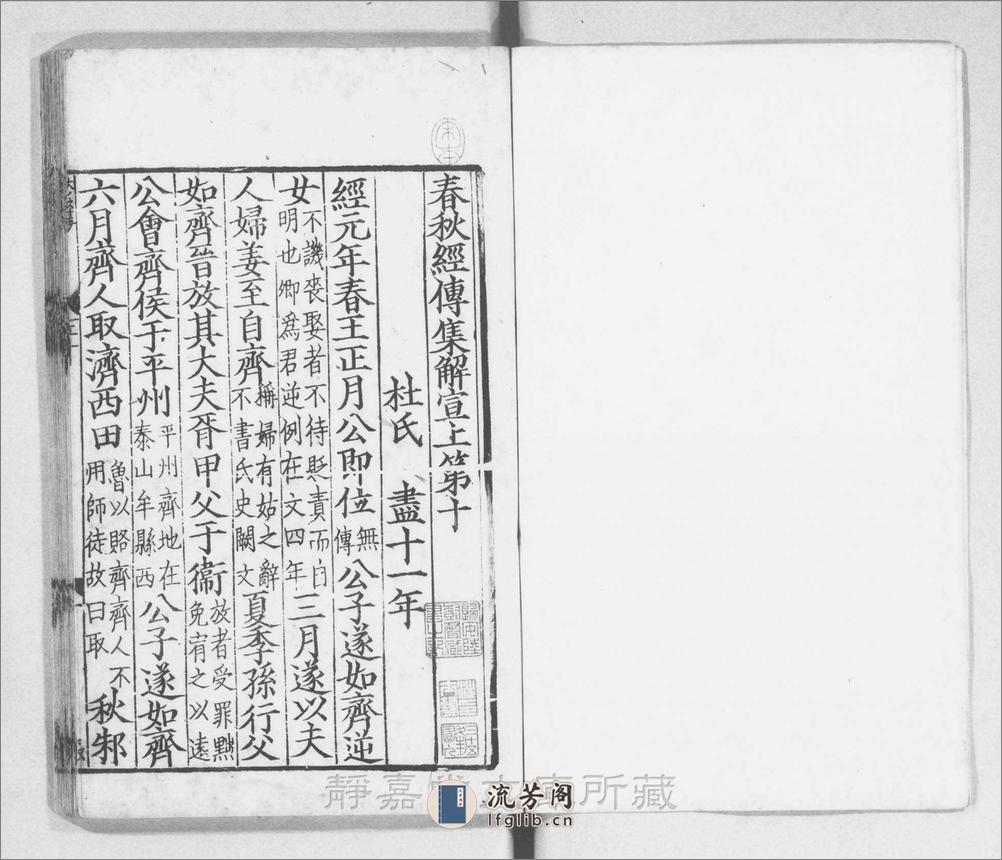 春秋經傳集解宣上第十
杜氏 盡十一年
經元年春王正月公即位無傳公子遂如齊逆
女不譏喪娶者不待貶責而自明也卿爲君逆例在文四年三月遂以夫
人婦姜至自齊稱婦有姑之辭不書氏史闕文夏季孫行父
如齊晉放其大夫胥甲父于衞放者受罪黜免宥之以遠
公會齊侯于平州平州齊地在泰山牟縣西公子遂如齊
六月齊人取濟西田魯以賂齊齊人不用師徒故曰取秋邾
靜嘉堂文庫所藏
流芳阁
lfglib.cn